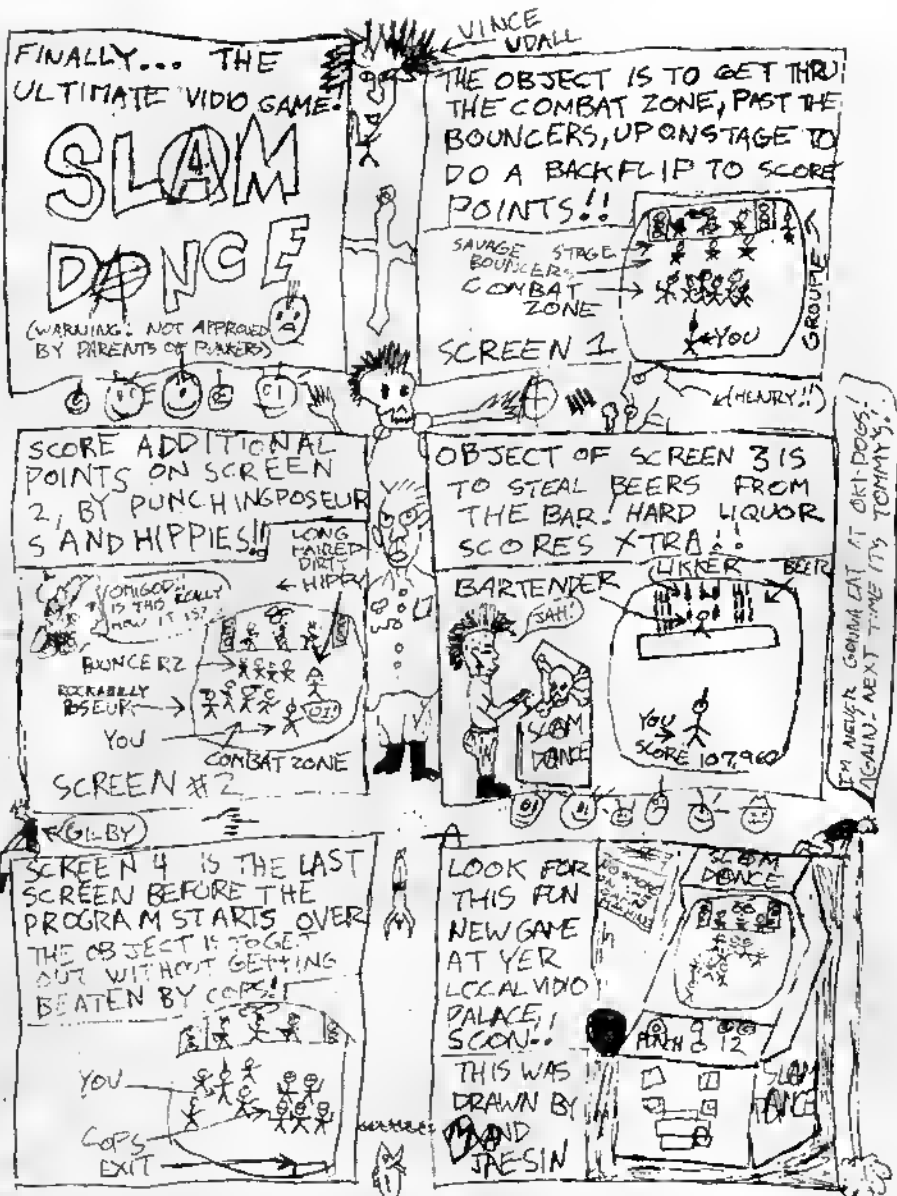 FINALLY... THE
ULTIMATE VIDIO GAME!
SLAM
DANCE
(WARNING: NOT APPROVED
BY PARENTS OF PUNKERS)
VINCE
UDALL
THE OBJECT IS TO GET THRU
THE COMBAT ZONE, PAST THE
BOUNCERS, UP ONSTAGE TO
DO A BACKFLIP TO SCORE
POINTS!!
SAVAGE
BOUNCERS
STAGE
COMBAT
ZONE
YOU
GROUPIE
SCREEN 1
(HENRY!!)
SCORE ADDITIONAL
POINTS ON SCREEN
2, BY PUNCHINGPOSEUR
S AND HIPPIES!!
LONG
HAIRED
DIRTY
HIPPY
OMIGOD!!
IS THIS REALLY
HOW IT IS?
BOUNCERZ
ROCKABILLY
POSEUR
YOU
OI!
COMBAT ZONE
SCREEN #2
OBJECT OF SCREEN 3 IS
TO STEAL BEERS FROM
THE BAR! HARD LIQUOR
SCORES XTRA!!
BARTENDER
LIKKER
BEER
JAH!
SLAM
DANCE
YOU
SCORE 107,960
I'M NEVER GONNA EAT AT OKI-DOGS!
AGAIN- NEXT TIME IT'S TOMMY'S!
GILBY
SCREEN 4 IS THE LAST
SCREEN BEFORE THE
PROGRAM STARTS OVER
THE OBJECT IS TO GET
OUT WITHOUT GETTING
BEATEN BY COPS!!
YOU
COPS
EXIT
LOOK FOR
THIS FUN
NEW GAME
AT YER
LOCAL VIDIO
PALACE
SOON!!
THIS WAS
DRAWN BY
AND
JAESIN
SLAM
DANCE
12
SLAM
DANCE